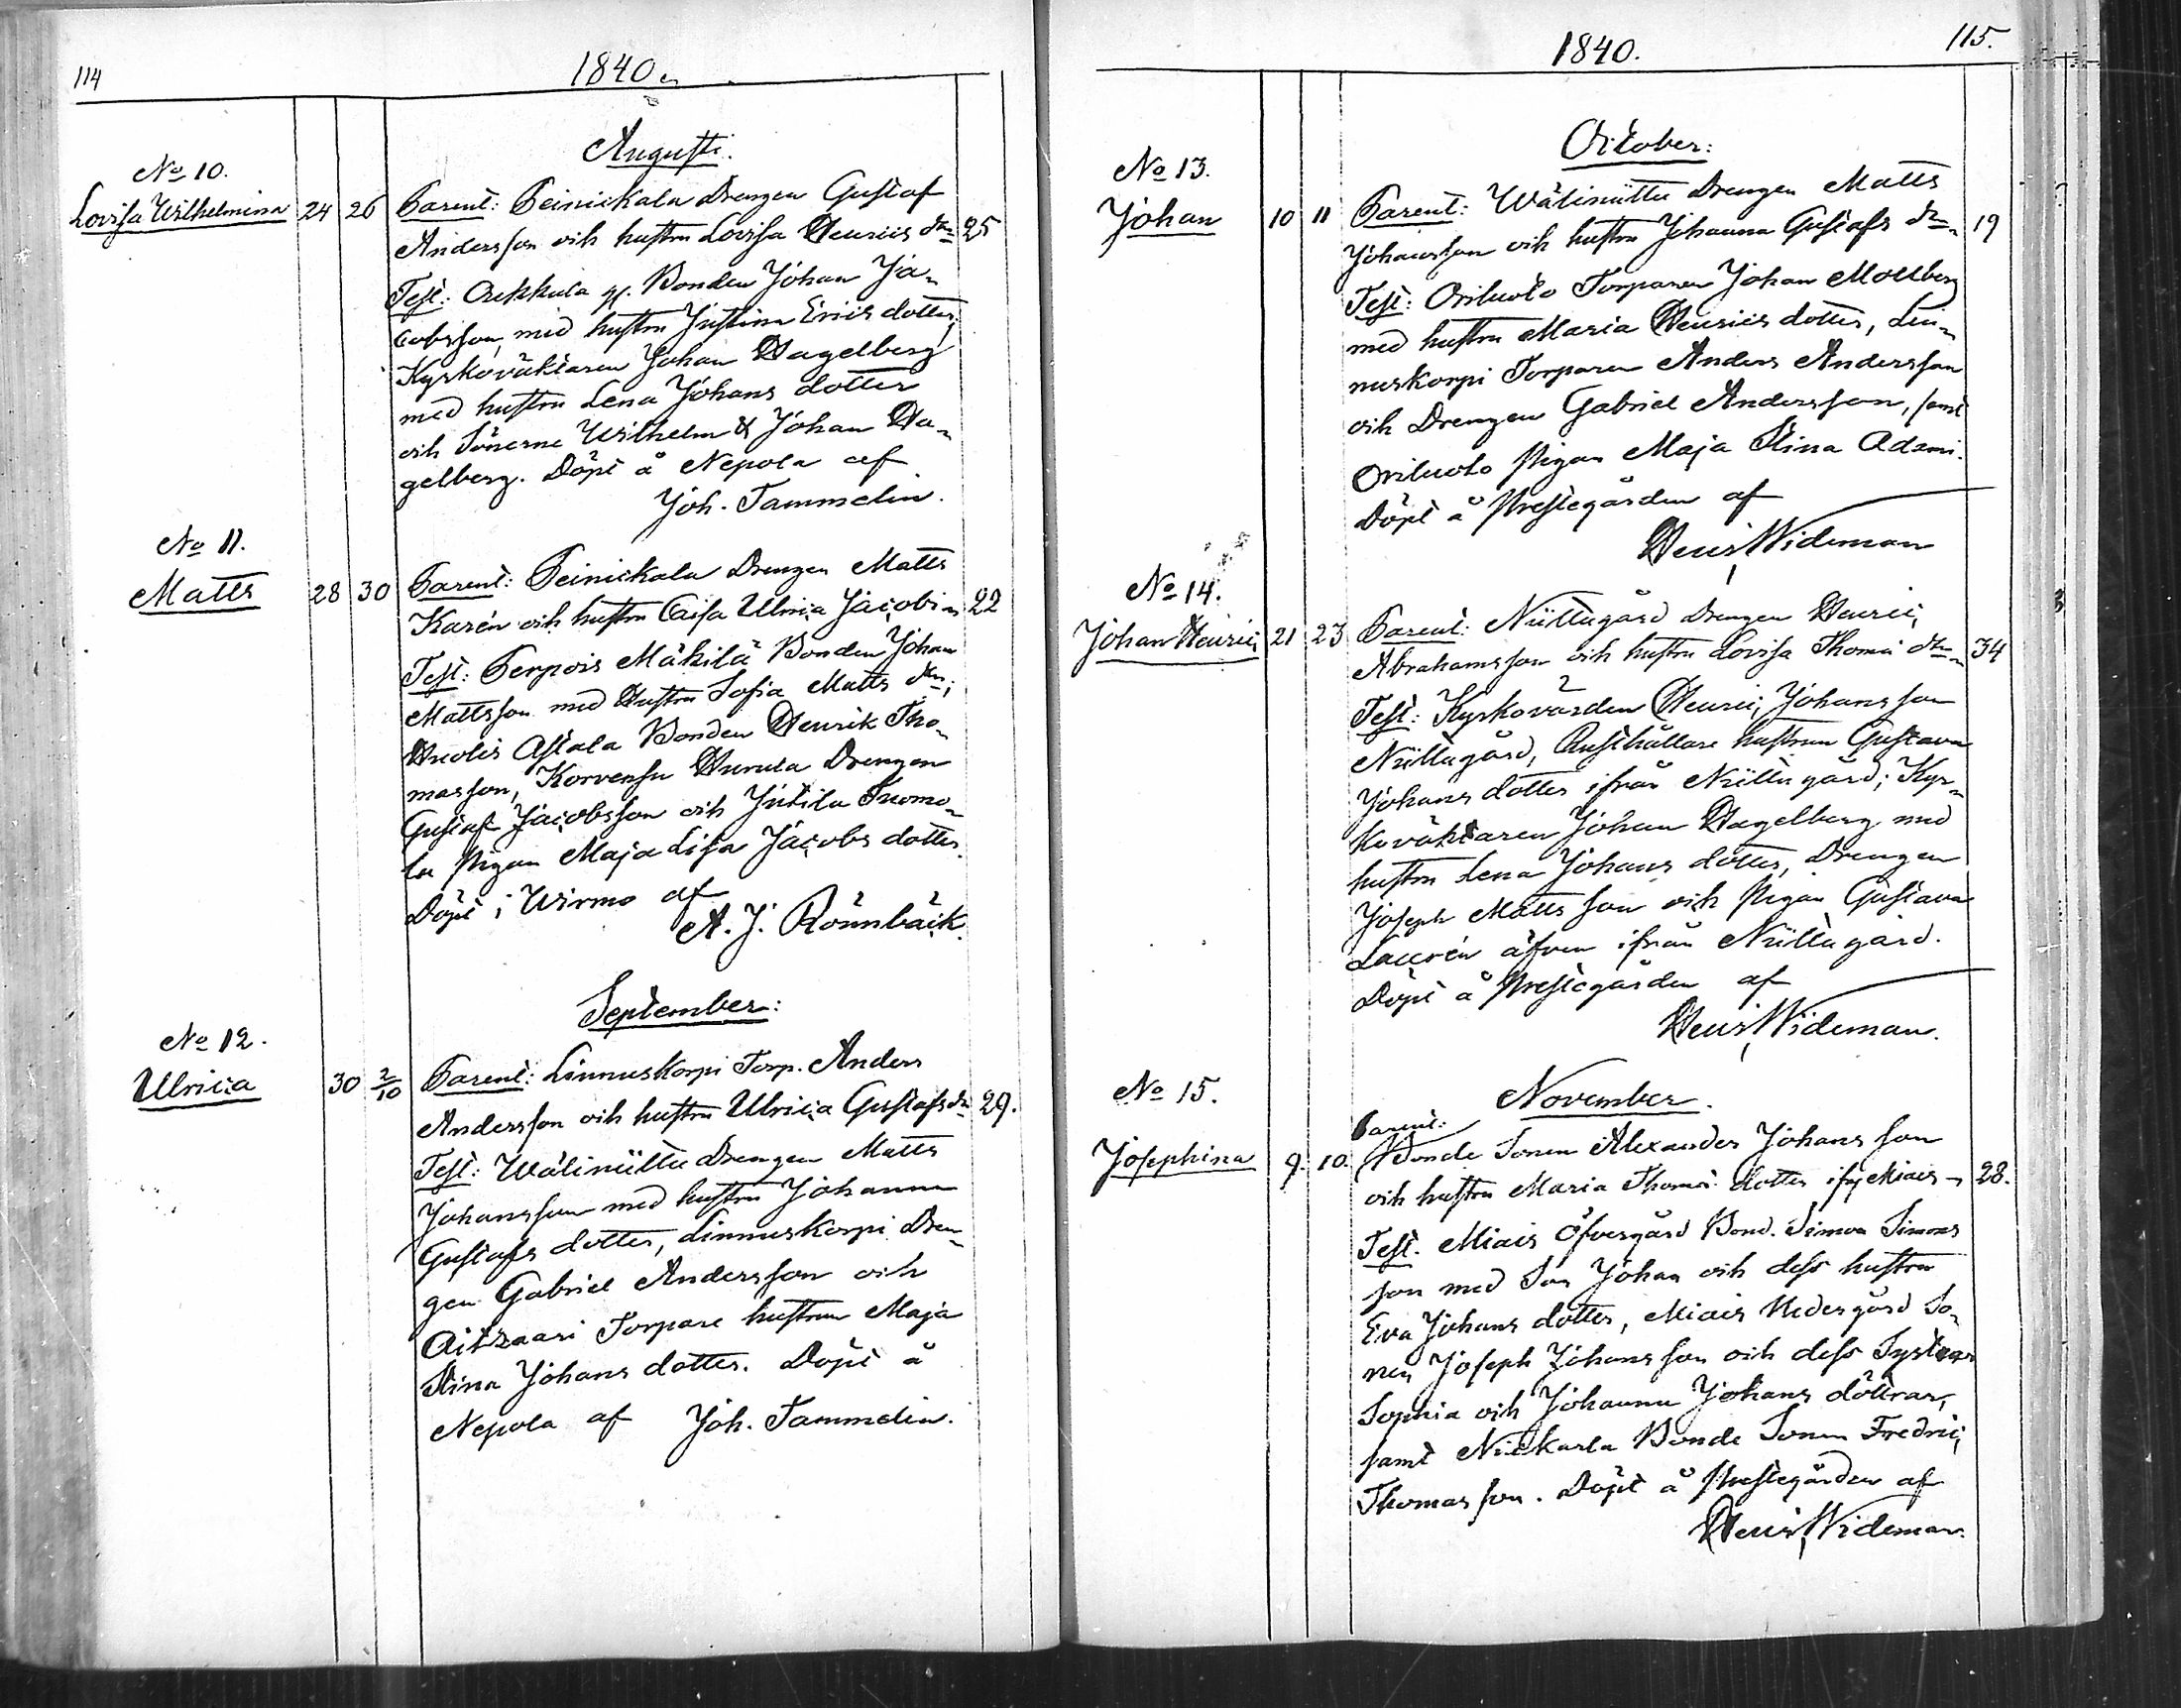 114
1840.
Augusti.
No 10.
Lovisa Wilhelmina 24 26 Parent: Peinickala Drengen Gustaf
Andersson och hustru Lovisa Henrics dr 25
Test: Bonden Johan Ja-
cobsson, med hustru Justina Erics dotter;
Kyrkoväktaren Johan Hagelberg
med hustru Lena Johans dotter
och Sönerne Wilhelm & Johan Ha-
gelberg. Döpt å Nepola af
Joh. Tammelin.
No 11.
Matts 28 30 Parent: Peinickala Drengen Matts
Karén och hustru Caisa Ulrica Jacobi 22
Test: Perpois Mäkilä Bonden Johan
Mattsson med Hustru Sofia Matts dr;
Astala Bonden Henrik Tho-
masson, Korvensu Drengen
Gustaf Jacobsson och Jutila Tuomo-
la Pigan Maja Lisa Jacobs dotter.
Döpt i Wirmo af
A. J. Rönnbäck.
September:
No 12.
Ulrica 30 2/10 Parent: Linnuskorpi Torp. Anders
Andersson och hustru Ulrica Gustafs dr 29.
Test: Wäliniittu Drengen Matts
Johansson med hustru Johanna
Gustafs dotter, Linnuskorpi Dren-
gen Gabriel Andersson och
Aitzaari Torpare hustrun Maja
Stina Johans dotter. Döpt å
Nepola af Joh. Tammelin.
1840.
115.
October:
No 13.
Johan 10 11 Parent: Wäliniittu Drengen Matts
Johansson och hustru Johanna Gustafs dr 19
Test: Oriluoto Torparen Johan Mollberg
med hustru Maria Henrics dotter, Lin-
nuskorpi Torparen Anders Andersson
och Drengen Gabriel Andersson, samt
Oriluoto Pigan Maja Stina Adami.
Döpt å Prestegården af
Henr. Wideman
No 14.
Johan Henric 21 23 Parent: Niittugård Drengen Henric
Abrahamsson och hustru Lovisa Thomæ dr 34
Test: Kyrkovärden Henric Johansson
Niittugård, Rusthållare hustrun Gustava
Johans dotter ifrån Niittugård; Kyr-
koväktaren Johan Hagelberg med
hustru Lena Johans dotter, Drengen
Joseph Matts son och Pigan Gustava
Laurén äfven ifrån Niittugård.
Döpt å Prestegården af
Henr. Wideman.
November.
No 15.
Parent:
Josephina 9. 10. Bonde Sonen Alexander Johans son
och hustru Maria Thomæ dotter ifr. Miais 28.
Test. Miais Öfvergård Bond. Simon Simons
son med Son Johan och dess hustru
Eva Johans dotter, Miais Nedergård So-
nen Joseph Johansson och dess Systrar
Sophia och Johanna Johans döttrar,
samt Nickarla Bonde Sonen Fredric
Thomasson. Döpt å Prestegården af
Henr. Wideman.